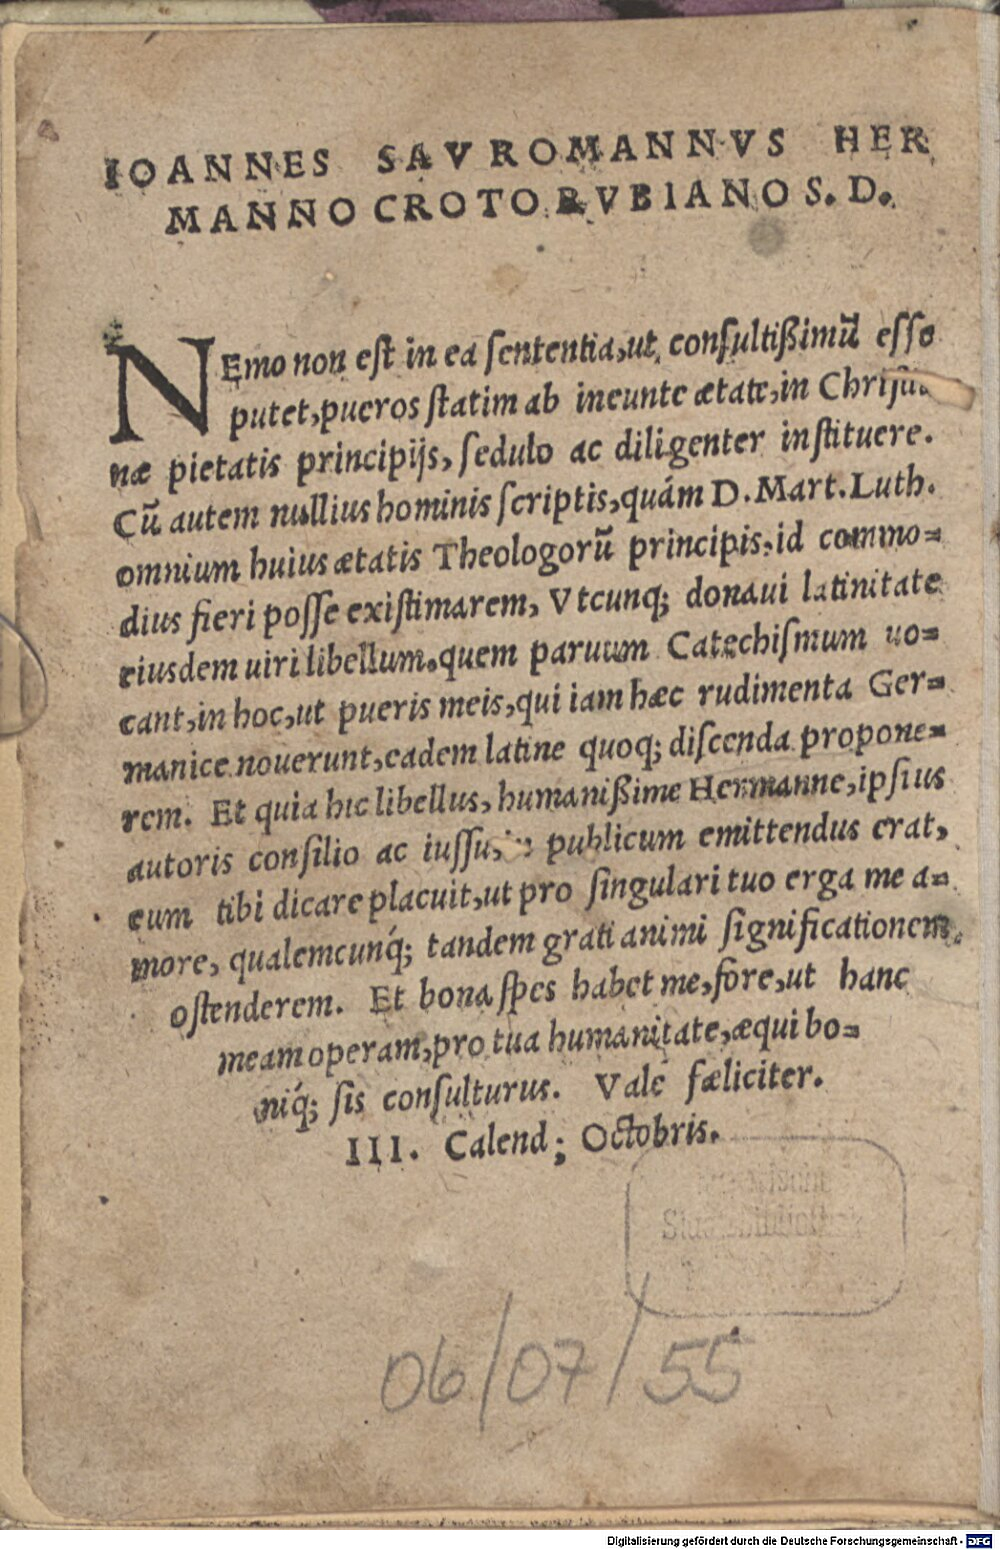 IOANNES SAVROMANNVS HER
MANNO CROTO RVBIANO S. D.
NEmo non eſt in ea ſententia,ut, conſultißimũ eſſe
putet,pueros ſtatim ab ineunte ætate,in Chriſtia
næ pietatis principijs, ſedulo ac diligenter inſtituere.
Cũ autem nullius hominis ſcriptis,quám D. Mart. Luth.
omnium huius ætatis Theologorũ principis,id commo=
dius fieri poſſe exiſtimarem, Vtcunq; donaui latinitate
eiusdem uiri libellum,quem paruum Catechiſmum uo=
cant,in hoc,ut pueris meis,qui iam hæc rudimenta Ger=
manice nouerunt,eadem latine quoq; diſcenda propone=
rem. Et quia hic libellus, humanißime Hermanne,ipſius
autoris conſilio ac iuſſu, publicum emittendus erat,
eum tibi dicare placuit,ut pro ſingulari tuo erga me a=
more, qualemcunq́; tandem grati animi ſignificationem
oſtenderem. Et bona ſpes habet me,fore,ut hanc
meam operam,pro tua humanitate,æqui bo=
niq́; ſis conſulturus. Vale fæliciter.
III. Calend; Octobris.
Staatsbibliothek
06/07/55
Digitalisierung gefördert durch die Deutsche Forschungsgemeinschaft - DFG